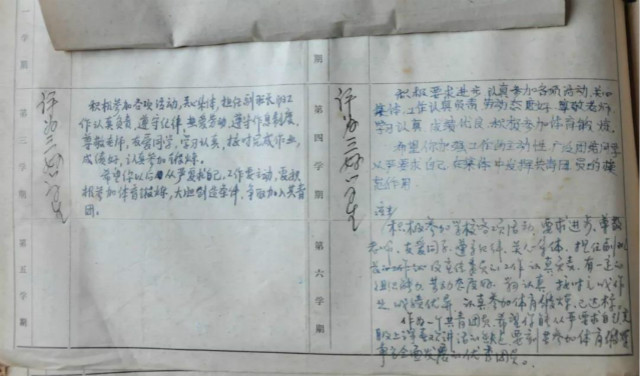 一学期
期
第三学期
评为三好学生
积极参加各项活动,关心集体,担任副班长的工
作认真负责,遵守纪律,热爱劳动,遵守作息制度,
尊敬老师,友爱同学,学习认真,按时完成作业,
成绩好,认真参加锻炼。
希望你以后从严要求自己,工作要主动,要积
极参加体育锻炼,大胆创造条件,争取加入共青
团。
第四学期
评为三好学生
积极要求进步,认真参加各项活动,关心
集体,工作认真负责,劳动态度好,尊敬老师,
学习认真,成绩优良,积极参加体育锻炼。
希望你加强工作的主动性,
从严要求自己,在集体中发挥共青团员的模
范作用。
第五学期
第六学期
积极参加学校各项活动,要求进步,尊敬
老师,友爱同学,遵守纪律,关心集体,担任副
工作认真负责,有一定的
组织能力,劳动态度好,学习认真,按时完成作
业,成绩优异,认真参加体育锻炼,已达标。
作为一个共青团员,希望你能从严要求自己,
参加体育锻炼
争当全面发展的优秀团员。